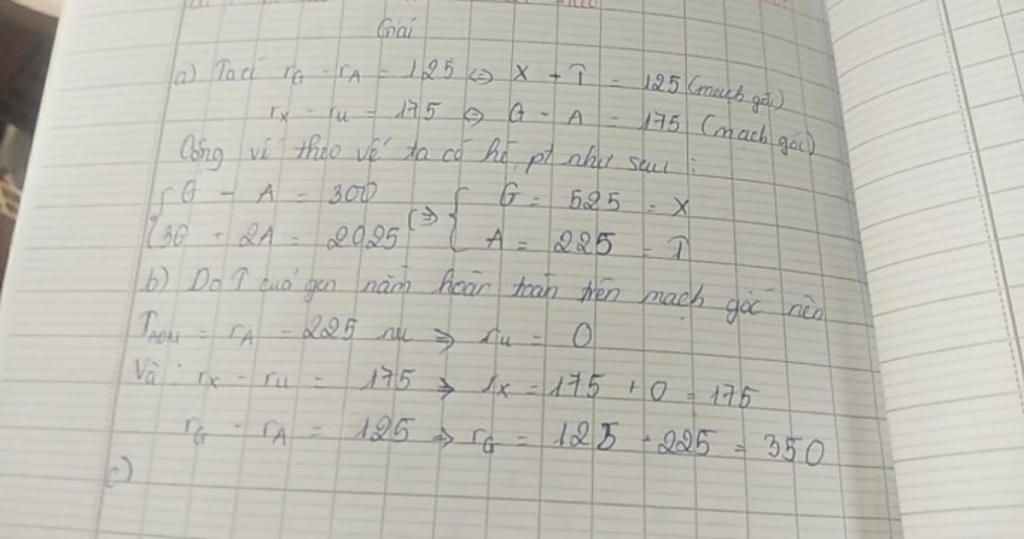 Giải
a) Ta có rG - rA = 125 ⇔ X - T = 125 (mạch gốc)
rX - rU = 175 ⇔ G - A = 175 (mạch gốc)
Cộng vế theo vế ta có hệ pt như sau:
{ G - A = 300 (⇒) { G = 525 = X
{ 3G + 2A = 2025 { A = 225 = T
b) Do T của gen nằm hoàn toàn trên mạch gốc nên
= rA = 225 nu ⇒ rU = 0
Và: rX - rU = 175 ⇒ rX = 175 + 0 = 175
rG - rA = 125 ⇒ rG = 125 + 225 = 350
c)